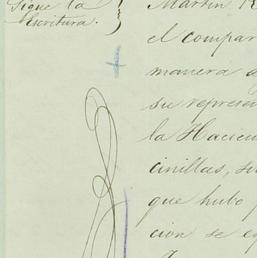 Sigue la
escritura.
Martin R
el compar
manera a
su represen
la Hacien
cinillas, su
que hubo
cion se e